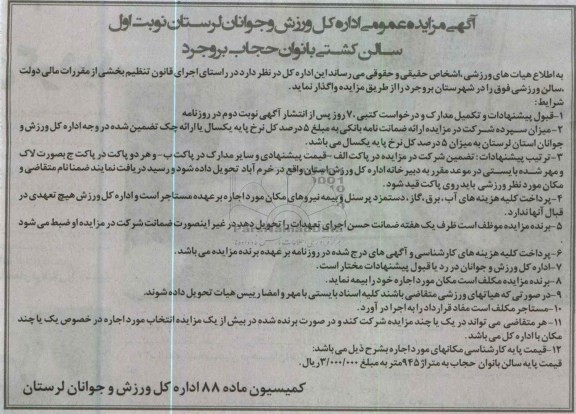 آگهی مزایده عمومی اداره کل ورزش و جوانان لرستان نوبت اول
سالن کشتی بانوان حجاب بروجرد
به اطلاع هیات های ورزشی، اشخاص حقیقی و حقوقی می رساند این اداره کل در نظر دارد در راستای اجرای قانون تنظیم بخشی از مقررات مالی دولت
،سالن ورزشی فوق را در شهرستان بروجرد را از طریق مزایده واگذار نماید.
شرایط:
۱-قبول پیشنهادات و تکمیل مدارک و درخواست کتبی ۷۰ روز پس از انتشار آگهی نوبت دوم در روزنامه
۲-میزان سپرده شرکت در مزایده ارائه ضمانت نامه بانکی به مبلغ ۵ درصد کل نرخ پایه یکسال یا ارائه چک تضمین شده در وجه اداره کل ورزش و
جوانان استان لرستان به میزان ۵ درصد کل نرخ پایه یکسال می باشد.
۳-ترتیب پیشنهادات: تضمین شرکت در مزایده در پاکت الف-قیمت پیشنهادی و سایر مدارک در پاکت ب-و هر دو پاکت در پاکت ج بصورت لاک
و مهر شده بایستی در موعد مقرر به دبیرخانه اداره کل ورزش استان واقع در خرم آباد تحویل داده شود و رسید دریافت نمایند ضمنا نام متقاضی و
مکان مورد نظر ورزشی باید روی پاکت قید شود.
۴-پرداخت کلیه هزینه های آب، برق، گاز، دستمزد پرسنل و بیمه نیروهای مکان مورد اجاره بر عهده مستاجر است و اداره کل ورزش هیچ تعهدی در
قبال آنها ندارد.
۵-برنده مزایده موظف است ظرف یک هفته ضمانت حسن اجرای تعهدات را تحویل دهد در غیر اینصورت ضمانت شرکت در مزایده او ضبط می شود
.
۶-پرداخت کلیه هزینه های کارشناسی و آگهی های درج شده در روزنامه بر عهده برنده مزایده می باشد.
۷-اداره کل ورزش و جوانان در رد یا قبول پیشنهادات مختار است.
۸-برنده مزایده مکلف است مکان مورد اجاره خود را بیمه نماید.
۹-در صورتی که هیاتهای ورزشی متقاضی باشند کلیه اسناد بایستی با مهر و امضا رییس هیات تحویل داده شوند.
۱۰-مستاجر مکلف است مفاد قرارداد را به اجرا در آورد.
۱۱-هر متقاضی می تواند در یک یا چند مزایده شرکت کند و در صورت برنده شدن در بیش از یک مزایده انتخاب مورد اجاره در خصوص یک یا چند
مکان با اداره کل می باشد.
۱۲-قیمت پایه کارشناسی مکانهای مورد اجاره بشرح ذیل می باشد:
قیمت پایه سالن بانوان حجاب به متراژ ۹۴۵ متر به مبلغ ۳/۰۰۰/۰۰۰ ریال.
کمیسیون ماده ۸۸ اداره کل ورزش و جوانان لرستان